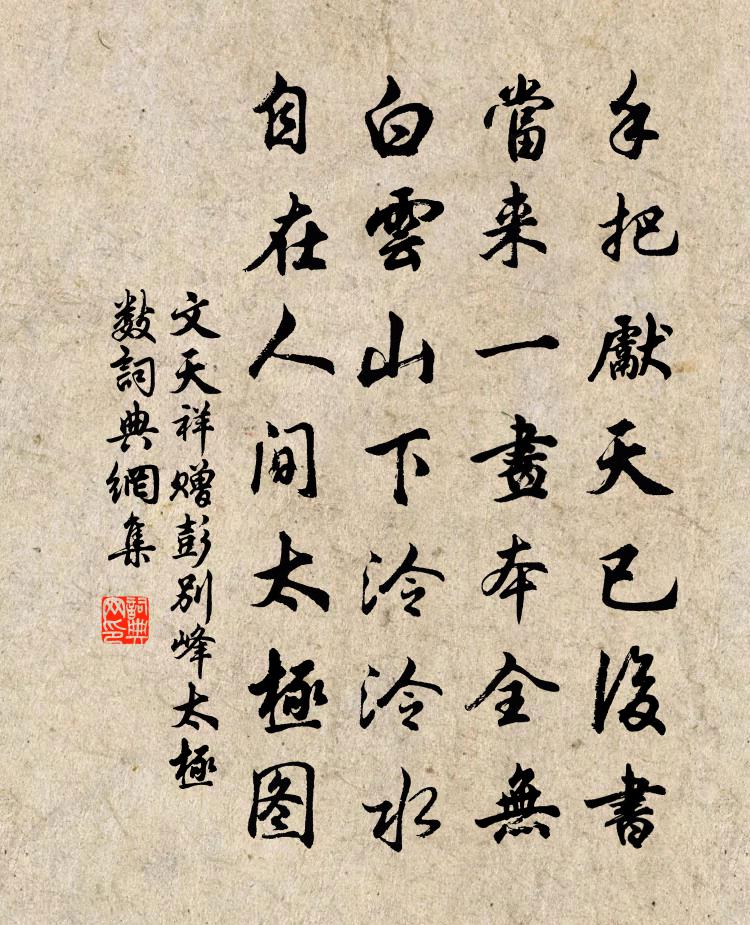 手把獻天已後書
當来一畫本全無
白雲山下泠泠水
自在人间太極图
文天祥赠彭别峰太極
数詞典網集
詞典
网印